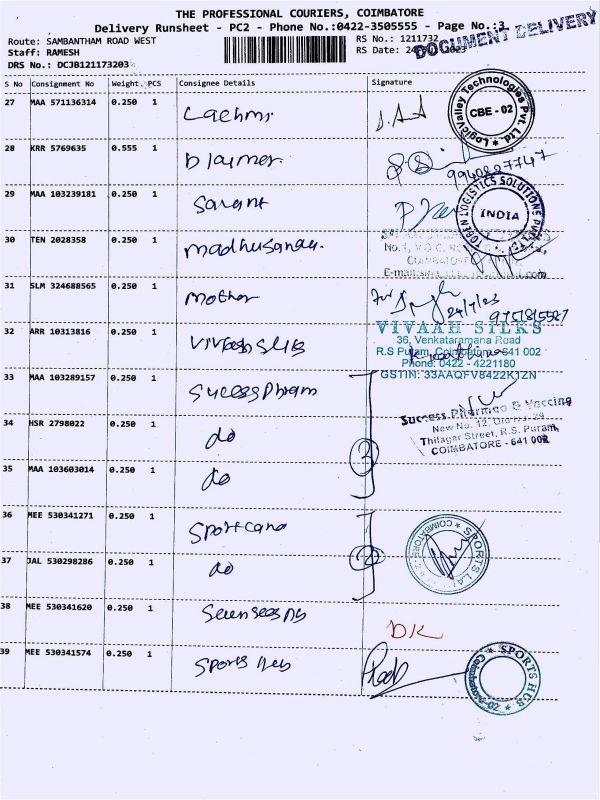 THE PROFESSIONAL COURIERS, COIMBATORE
Delivery Runsheet - PC2 - Phone No.:0422-3505555 - Page No.:3
DOCUMENT DELIVERY
Route: SAMBANTHAM ROAD WEST RS No.: 1211732
Staff: RAMESH RS Date:
DRS No.: DCJB121173203
S No Consignment No Weight PCS Consignee Details Signature
27 MAA 571136314 0.250 1 Laehmi
LogicValley Technologies Pvt. Ltd
CBE - 02
28 KRR 5769635 0.555 1
9940827747
29 MAA 103239181 0.250 1 Sarant
TOBEN LOGISTICS SOLUTIONS PVT LTD
INDIA
30 TEN 2028358 0.250 1
31 SLM 324688565 0.250 1 mother
24/7/23
32 ARR 10313816 0.250 1
VIVAAH SILKS
36, Venkataramana Road
R.S Puram, Coimbatore-641 002
Phone: 0422 - 4221180
GSTIN: 33AAQFV8422K1ZN
33 MAA 103289157 0.250 1 SucessPhram
Success Pharma & Vaccine
New No. 12, Old No. 29
Thilagar Street, R.S. Puram,
COIMBATORE - 641 002
34 HSR 2798022 0.250 1 do
35 MAA 103603014 0.250 1 do
3
36 MEE 530341271 0.250 1 Sportcand
COIMBATORE
SPORTS
37 JAL 530298286 0.250 1 do
2
38 MEE 530341620 0.250 1
DK
39 MEE 530341574 0.250 1 Sports Hub
SPORTS HUB
Coimbatore-02